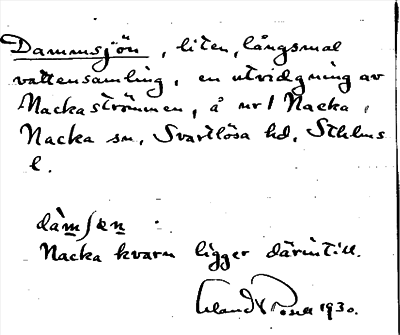 Dammsjön, liten, långsmal
vattensamling, en utvidgning av
Nackaströmmen, å nr 1 Nacka,
Nacka sn, Svartlösa hd, Sthlms
l.
dàmʃən
Nacka kvarn ligger därintill.
1930.